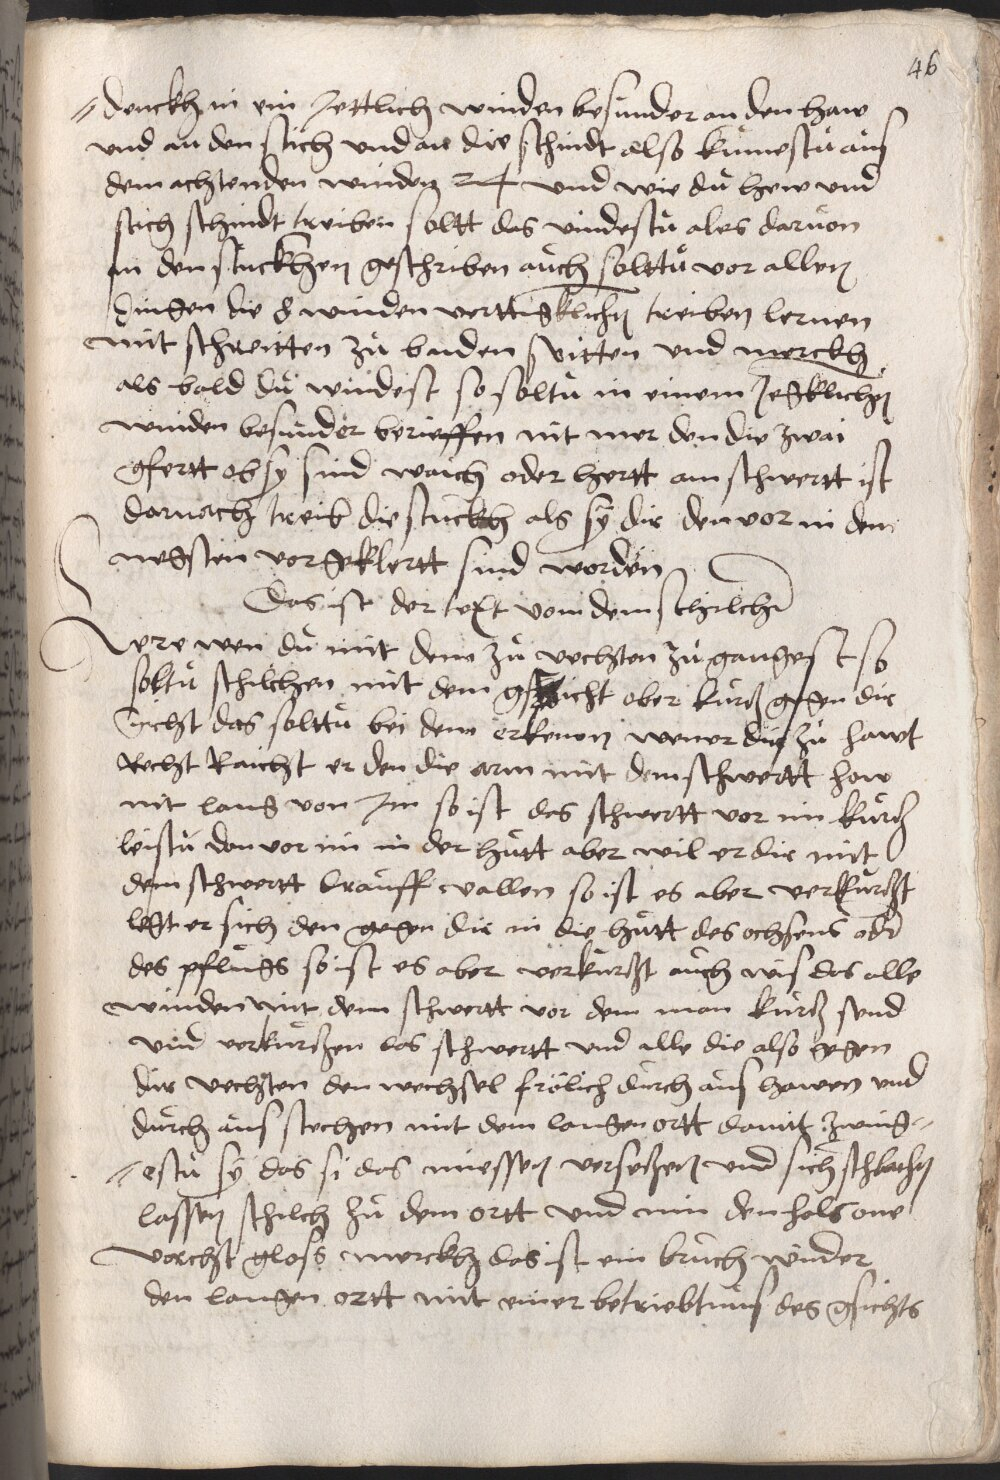 46
denckh in ein Jettlich winden besunder an den haw
und an den stich und an die schindt also kumestu aus
dem achtenden winden 24 und wie du hew und
stich schindt treiben soltt das vindestu ales daruon
in den stuckhen geschriben auch solttu vor allen
dingen die 8 winden verttigklichen treiben lernen
mit schreitten zu baiden seitten und merckh
als bald du windest so soltu in einem Jegklichen
winden besunder brieffen nit mer den die zwai
gfertt ob sy sind waich oder hertt am schwertt ist
darnach treib die stuckh als sy dir den vor in dem
negsten vor geklertt sind worden
Das ist der text von dem schilcher
Were wen du mit dem zu vechten zu gangest so
soltu schilchen mit dem gsicht ober kurtz gegen dir
vicht das solttu bei dem erkenen wen er dir zu hawt
Recht Raicht er den die arm mit dem schwertt
nit lang von Im so ist das schwertt vor im kurtz
leistu dan vor im in der hutt aber wil er dir mit
dem schwertt drauff vallen so ist es aber verkurtzt
legt er sich den gegen dir in die hutt des ochsens oder
des pflugs so ist es aber verkurtzt auch wis das alle
winden mit dem schwertt vor dem man kurtz send
und verkurtzen das schwertt und alle die also gegen
dir vechten den wechsel frölich durch aus hawen und
durch aus stechen mit dem langen ortt damit zwing-
estu sy das si das miessen versetzen und sich schlachen
lassen schilch zu dem ortt und nim den hals one
vorcht gloss merckh das ist ein bruch wider
den langen ortt mit einer betriebtnus des gsichts